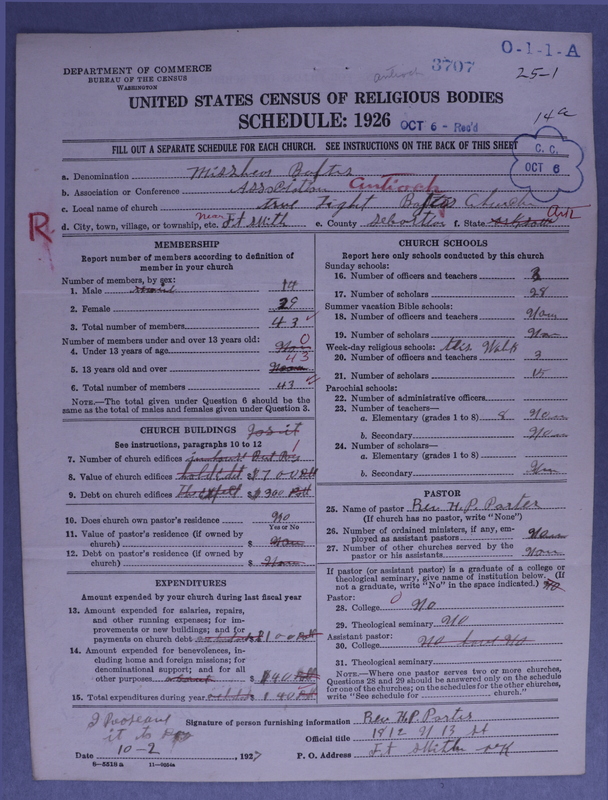 O-1-1-A
antioch 3707
25-1
DEPARTMENT OF COMMERCE
BUREAU OF THE CENSUS
WASHINGTON
UNITED STATES CENSUS OF RELIGIOUS BODIES
SCHEDULE: 1926
OCT 6 - Rec'd
14a
FILL OUT A SEPARATE SCHEDULE FOR EACH CHURCH. SEE INSTRUCTIONS ON THE BACK OF THIS SHEET
C. C.
OCT 6
a. Denomination
b. Association or Conference Antioch
c. Local name of church true Light Church
d. City, town, village, or township, etc. Near Ft Smith e. County f. State Ark
R
MEMBERSHIP
Report number of members according to definition of member in your church
Number of members, by sex:
1. Male 14
2. Female 29
3. Total number of members 43
Number of members under and over 13 years old:
4. Under 13 years of age 0
5. 13 years old and over 43
6. Total number of members 43
NOTE.—The total given under Question 6 should be the same as the total of males and females given under Question 3.
CHURCH BUILDINGS
See instructions, paragraphs 10 to 12
7. Number of church edifices 1
8. Value of church edifices $700
9. Debt on church edifices $300
10. Does church own pastor's residence? No
Yes or No
11. Value of pastor's residence (if owned by church) $
12. Debt on pastor's residence (if owned by church) $
EXPENDITURES
Amount expended by your church during last fiscal year
13. Amount expended for salaries, repairs, and other running expenses; for improvements or new buildings; and for payments on church debt $100
14. Amount expended for benevolences, including home and foreign missions; for denominational support; and for all other purposes $90
15. Total expenditures during year $ 90
CHURCH SCHOOLS
Report here only schools conducted by this church
Sunday schools:
16. Number of officers and teachers 3
17. Number of scholars 28
Summer vacation Bible schools:
18. Number of officers and teachers
19. Number of scholars
Week-day religious schools: this
20. Number of officers and teachers 3
21. Number of scholars 15
Parochial schools:
22. Number of administrative officers
23. Number of teachers—
a. Elementary (grades 1 to 8) 8
b. Secondary
24. Number of scholars—
a. Elementary (grades 1 to 8)
b. Secondary
PASTOR
25. Name of pastor Rev. H.P. Porter
(If church has no pastor, write "None")
26. Number of ordained ministers, if any, employed as assistant pastors
27. Number of other churches served by the pastor or his assistants
If pastor (or assistant pastor) is a graduate of a college or theological seminary, give name of institution below. (If not a graduate, write "No" in the space indicated.) No
Pastor:
28. College 0 No
29. Theological seminary No
Assistant pastor:
30. College No
31. Theological seminary
NOTE.—Where one pastor serves two or more churches, Questions 28 and 29 should be answered only on the schedule for one of the churches; on the schedules for the other churches, write "See schedule for church."
Signature of person furnishing information Rev. H.P. Porter
Official title 1812 N 13 St
Date 10-2, 1927 P. O. Address Ft Smith Ark
8-5518a 11-9554a